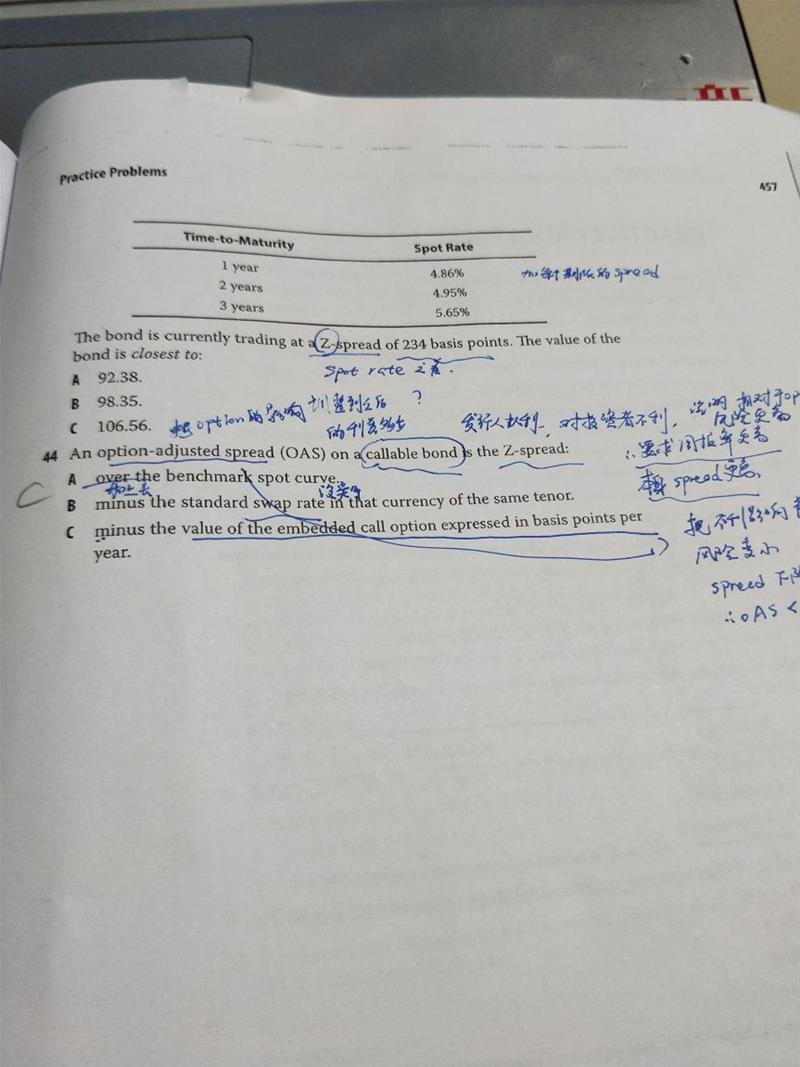 Practice Problems
457
Time-to-Maturity Spot Rate
1 year 4.86%
2 years 4.95%
3 years 5.65%
的 spread
The bond is currently trading at a Z-spread of 234 basis points. The value of the
bond is closest to:
spot rate 之差.
A 92.38.
B 98.35.
C 106.56.
把 option 的影响调整到之后
?
的利差
发行人权利, 对投资者不利,
说明 相对于
风险更高
∴要求回报率更高
spread更高
44 An option-adjusted spread (OAS) on a callable bond is the Z-spread:
C
A over the benchmark spot curve.
B minus the standard swap rate in that currency of the same tenor.
C minus the value of the embedded call option expressed in basis points per
year.
把不利影响
风险变小
spread 下降
∴OAS <